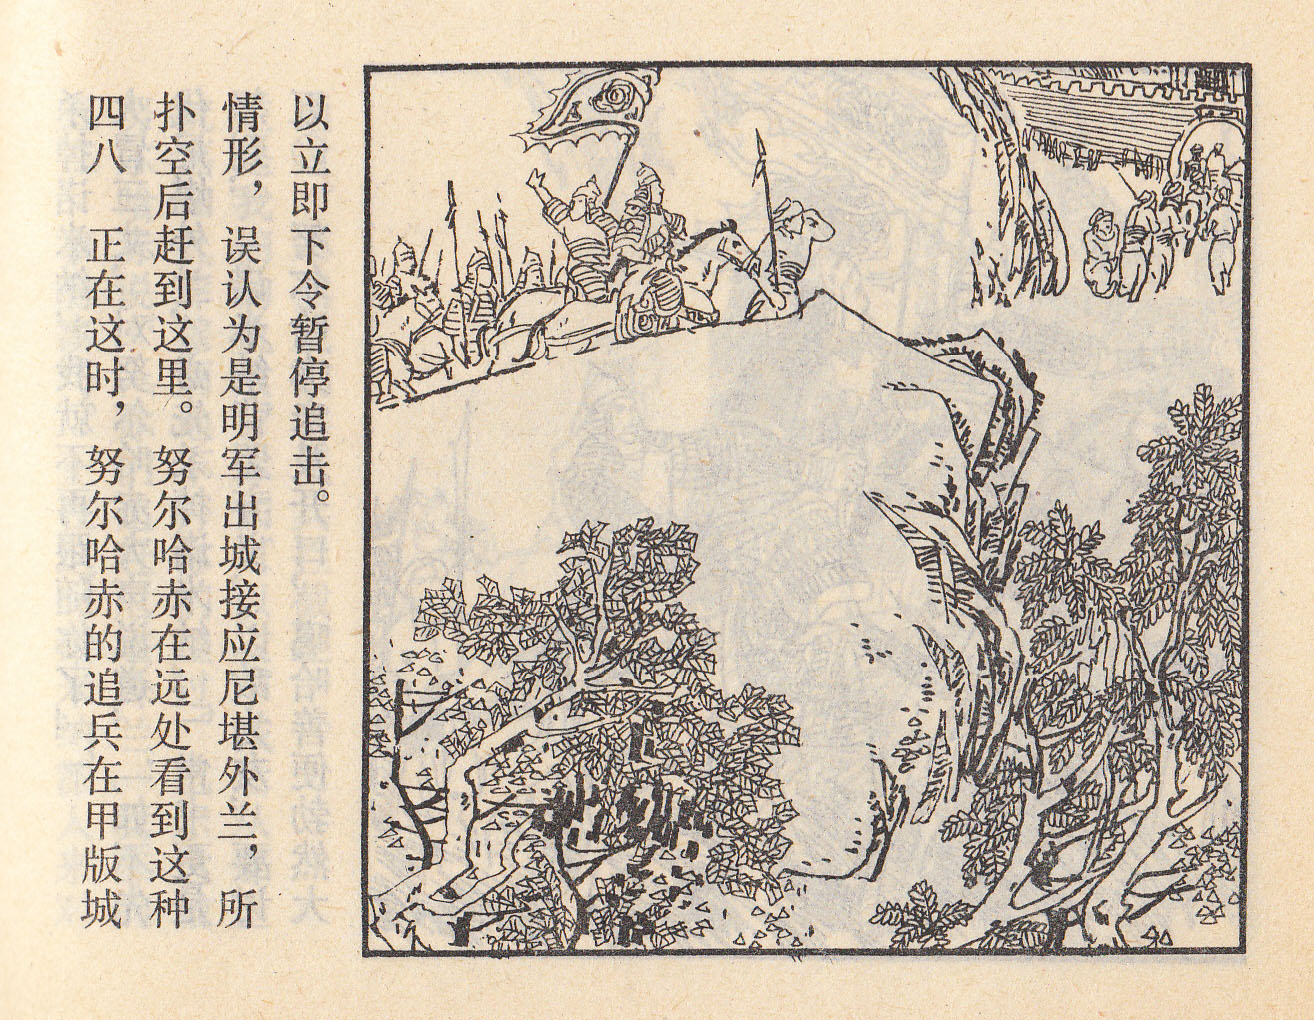 四八 正在这时，努尔哈赤的追兵在甲版城
扑空后赶到这里。努尔哈赤在远处看到这种
情形，误认为是明军出城接应尼堪外兰，所
以立即下令暂停追击。